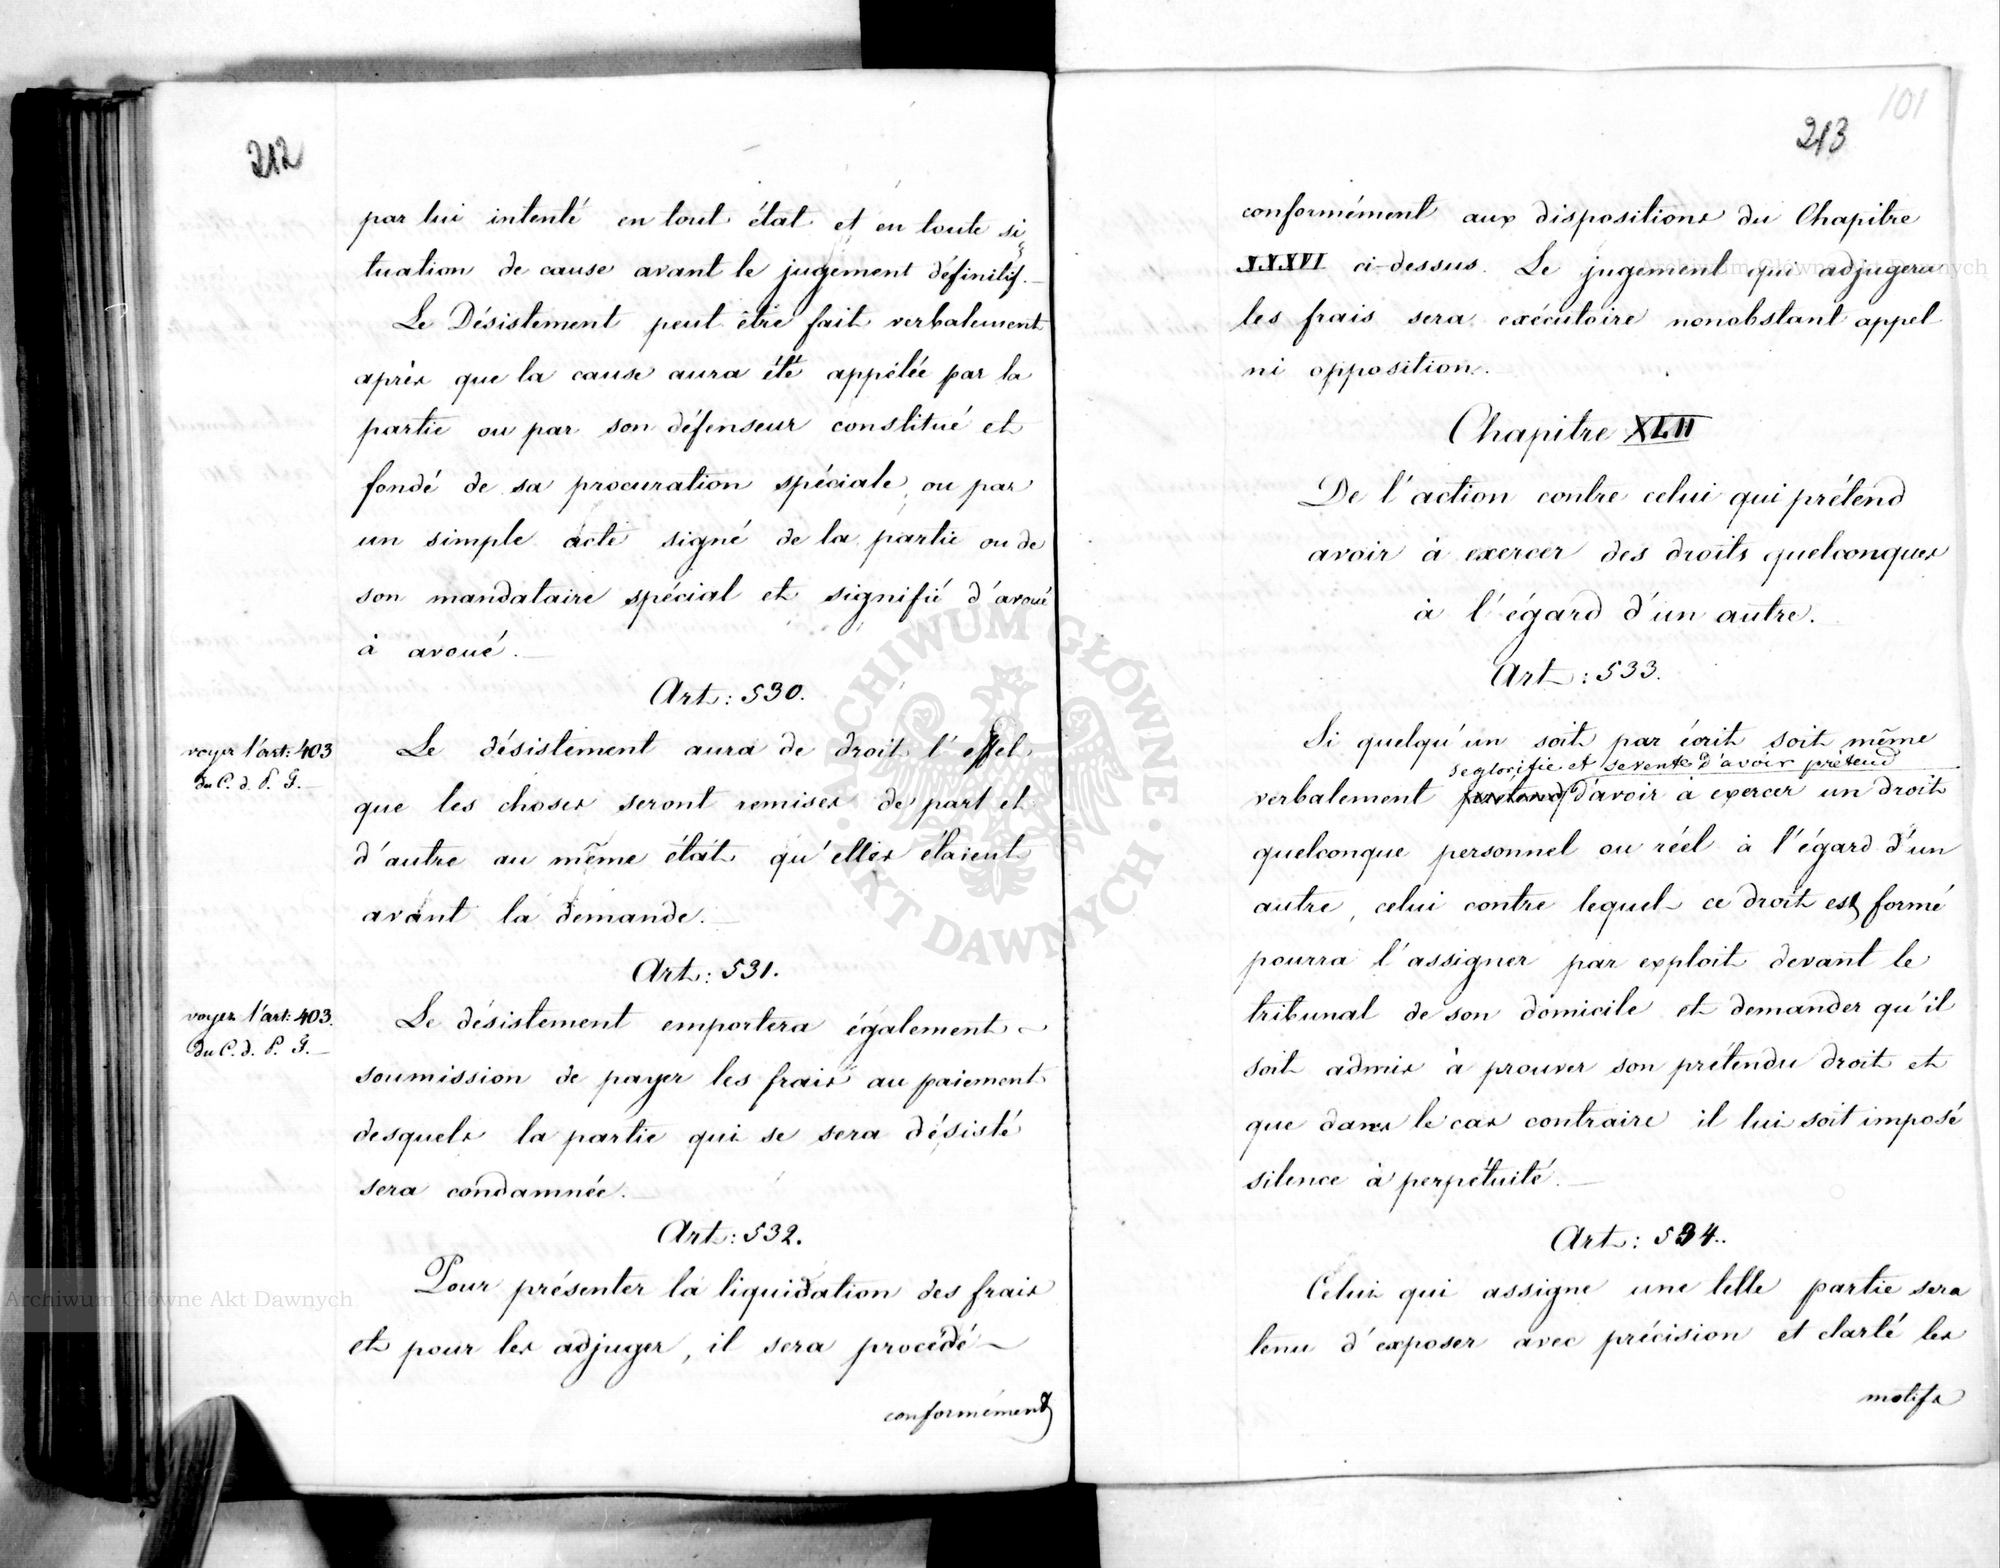 212
par lui intenté en tout état et en toute si
tuation de cause avant le jugement définitif.
Le Désistement peut être fait verbalement
après que la cause aura été appélée par la
partie ou par son défenseur constitué et
fondé de sa procuration spéciale, ou par
un simple acte signé de la partie ou de
son mandataire spécial et signifié d'avoué
à avoué.
Art: 530.
voyez l'art: 403
du C. d. P. G.
Le désistement aura de droit l'effet
que les choses seront remises de part et
d'autre au même état qu'elles étaient
avant la demande.
Art: 531.
voyez l'art: 403.
du C. d. P. G.
Le désistement emportera également
soumission de payer les frais au paiement
desquels la partie qui se sera désisté
sera condamnée.
Art: 532.
Pour présenter la liquidation des frais
et pour les adjuger, il sera procédé
conformément
101
213
conformément aux dispositions du Chapitre
XXXVI ci-dessus. Le jugement qui adjugera
les frais sera exécutoire nonobstant appel
ni opposition.
Chapitre XLII
De l'action contre celui qui prétend
avoir à exercer des droits quelconques
à l'égard d'un autre.
Art: 533.
Si quelqu'un soit par écrit soit même
se glorifie et se vente d'avoir prétend
verbalement prétend d'avoir à exercer un droit
quelconque personnel ou réel à l'égard d'un
autre, celui contre lequel ce droit est formé
pourra l'assigner par exploit devant le
tribunal de son domicile et demander qu'il
soit admis à prouver son prétendu droit et
que dans le cas contraire il lui soit imposé
silence à perpétuité.
Art: 534.
Celui qui assigne une telle partie sera
tenu d'exposer avec précision et clarté les
motifs
ARCHIWUM GŁÓWNE AKT DAWNYCH
Archiwum Główne Akt Dawnych
Archiwum Główne Akt Dawnych